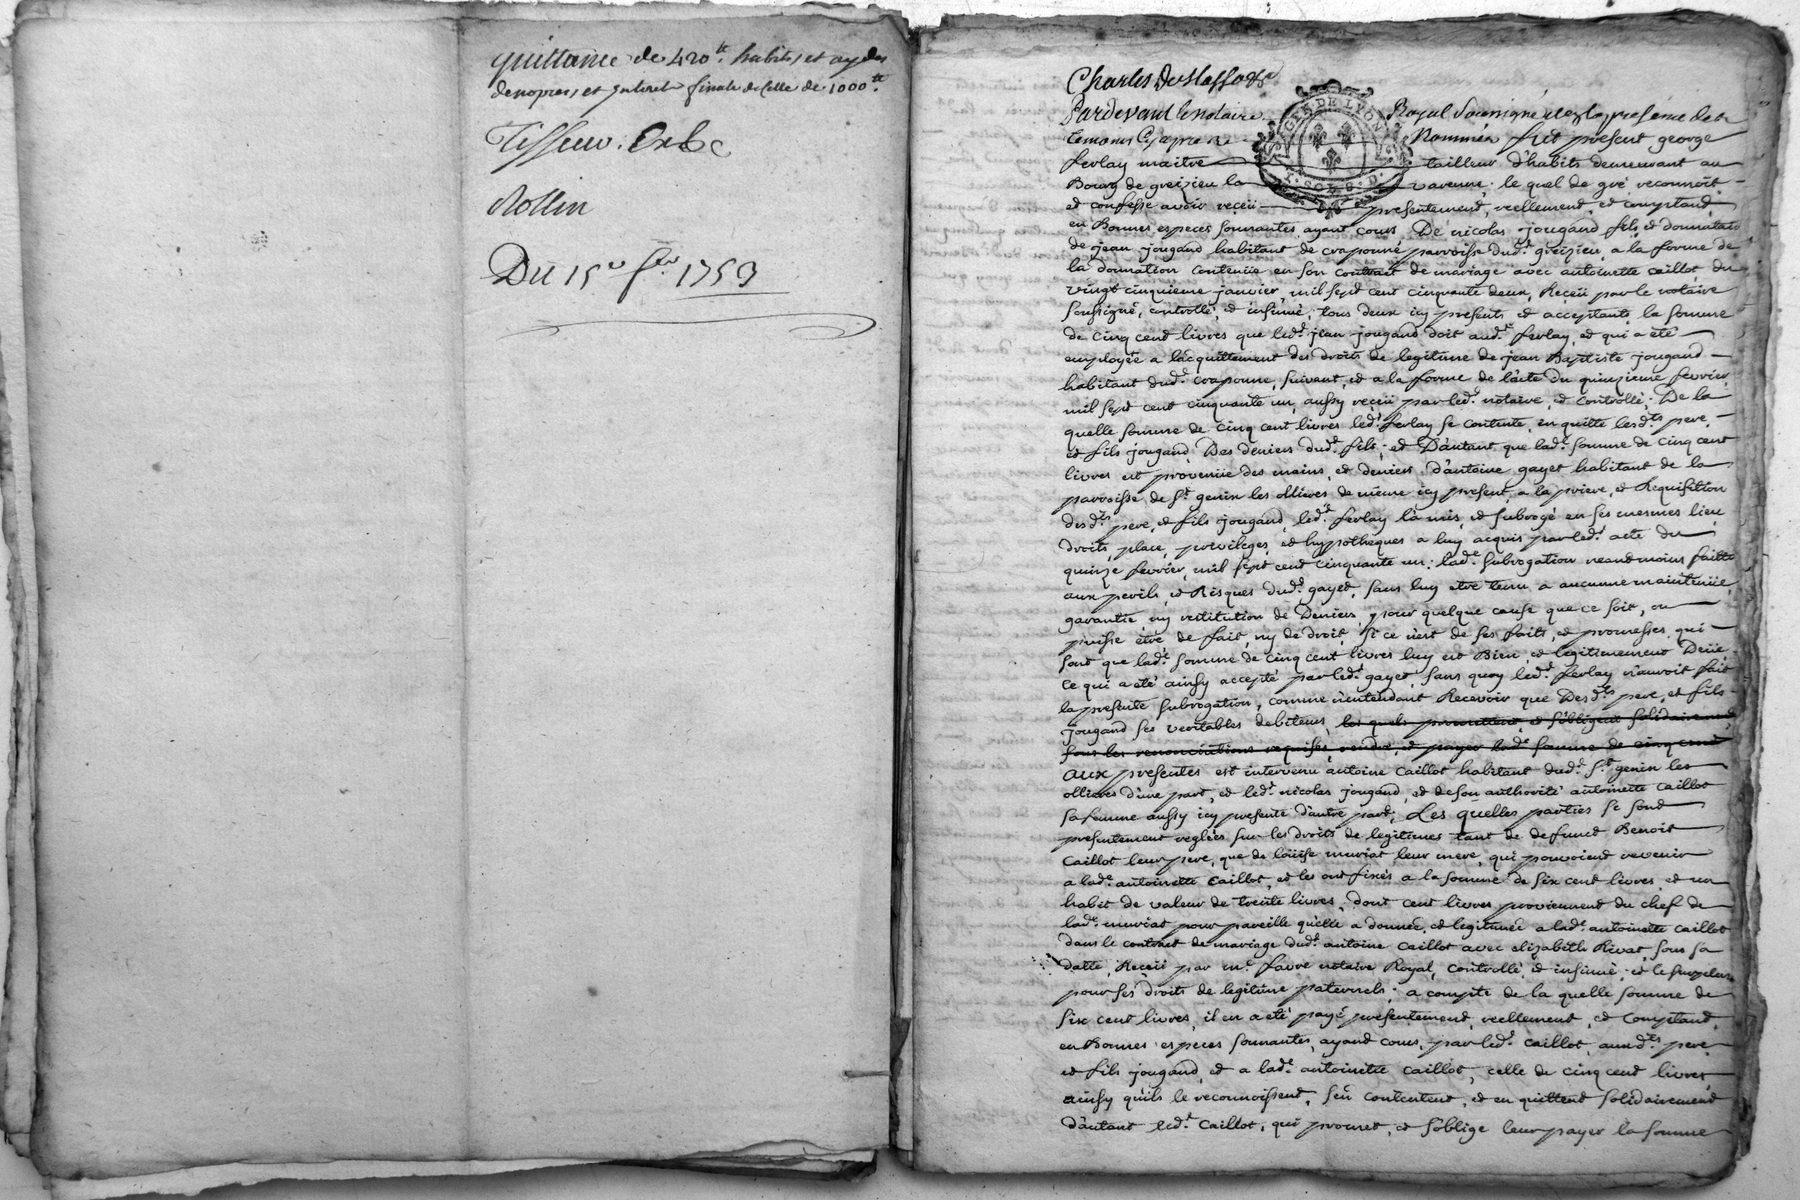 quittance de 420 tt. habits, et aydes
denopces, et interet finale de Celle de 1000 tt.
Tisseur
Rollin
Du 15e fer. 1753
Charles
GEN. DE LYON
SOLS. D.
Pardevant le notaire Royal soussigné et en la presence des
temoins cy apres Nommés fut present george
ferlay maitre tailleur d'habits demeurant au
Bourg de greizieu la varenne, le quel de gré reconnoit
et confesse avoir reçeü presentement, reellement, et comptant
en Bonnes especes sonnantes ayant cours De nicolas jougand fils, et donnataire
de jean jougand habitant de craponne parroisse dud.t greizieu, a la forme de
la donnation contenüe en son contrait de mariage avec antoinette caillot, du
vingt cinquieme janvier, mil sept cent cinquante deux, Reçeü par le notaire
soussigné, controllé, et insinué, tous deux icy presents et acceptants la somme
de cinq cent livres que led.t jean jougand doit aud.t ferlay, et qui a été
employée a l'acquittement des droits de legitime de jean Baptiste jougand
habitant dud.t craponne, suivant, et a la forme de l'acte du quinzieme fevrier
mil sept cent cinquante un, aussy reçeü par led.t notaire, et controllé; De la
quelle somme de cinq cent livres led.t ferlay se contente, en quitte lesd.ts pere,
et fils jougand, Des deniers dud.t fils; et D'autant que lad.e somme de cinq cent
livres est provenüe des mains, et deniers d'antoine gayet habitant de la
parroisse de S.t genin les ollieres de méme icy present, a la priere, et Requisition
desd.ts pere, et fils jougand, led.t ferlay l'a mis, et subrogé en ses mesmes lieu
droits, place, privileges, et hypotheques a luy acquis par led.t acte du
quinze fevrier, mil sept cent cinquante un; lad.e subrogation neantmoins faitte
aux perils, et Risques dud.t gayet, sans luy etre tenu a aucunne maintenüe
garantie, ny restitution de Deniers, pour quelque cause que ce soit, ou
puisse étre de fait, ny de droit, si ce n'est de ses faits, et promesses, qui
sont que lad.e somme de cinq cent livres luy est Bien, et legitimement Deüe
ce qui a eté ainsy accepté par led.t gayet, sans quoy led.t ferlay n'auroit fait
la presente subrogation, comme n'intendant Recevoir que Desd.ts pere, et fils
jougand ses veritables debiteurs, les quels promettent, et s'obligent solidairement
sous les renonciations requises, rendre, et payer lad.e somme de cinq cent
aux presentes est intervenu antoine Caillot habitant dud.t S.t genin les
ollieres d'une part, et led.t nicolas jougand, et de son authorité antoinette caillot
sa femme aussy icy presente d'autre part; Les quelles parties se sont
presentement reglées sur les droits de legitimes tant de defunct Benoit
Caillot leur pere, que de loüise muriat leur mere, qui pouvoient revenir
a lad.e antoinette Caillot, et les ont fixés a la somme de six cent livres, et un
habit de valeur de trente livres, dont cent livres proviennent du chef de
lad.e muriat pour pareille qu'elle a donnée, et legitimée a lad.e antoinette caillot
dans le contract de mariage dud.t antoine Caillot avec elizabeth Rivat, sous sa
datte, Reçeü par m.e favre notaire Royal, Controllé, et insinué; et le surplus
pour ses droits de legitime paternels; a compte de la quelle somme de
six cent livres, il en a eté payé presentement, reellement, et Comptant,
en Bonnes especes sonnantes, ayant cours, par led.t Caillot, auxd.ts pere
et fils jougand, et a lad.e antoinette Caillot, celle de cinq cent livres,
ainsy qu'ils le reconnoissent, s'en contentent, et en quittent solidairement
d'autant led.t Caillot; qui promet, et s'oblige leur payer la somme